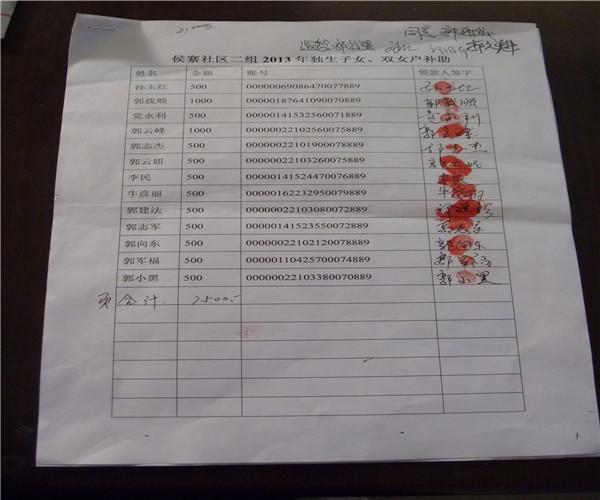 同意
侯寨社区二组 2013 年独生子女、双女户补助
姓名 金额 账号 领款人签字
孙玉红 500 00000069086470077889
郭载顺 1000 00000187641090070889 郭载顺
党永利 500 00000141532560071889 党永利
郭云峰 1000 00000022102560075889 郭云峰
郭志杰 500 00000022101900078889 郭志杰
郭云姐 500 00000022103260075889
李民 500 00000141524470076889 李民
牛彦丽 500 00000162232950079889 牛彦丽
郭建法 500 00000022103080072889 郭建法
郭志军 500 00000141523550072889 郭志军
郭向东 500 00000022102120078889 郭向东
郭军福 500 00000110425700074889 郭军福
郭小黑 500 00000022103380070889 郭小黑
页合计 7500.